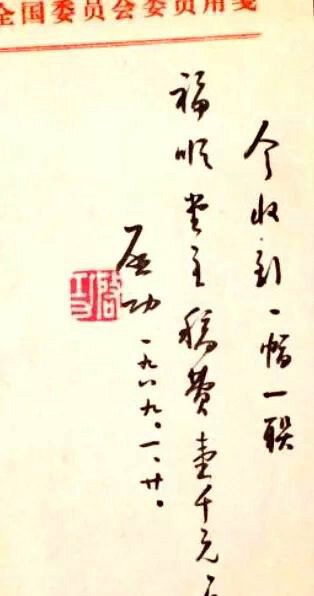 全国委员会委员用笺
今收到一幅一联
福顺堂主稿费壹千元
启功
一九八九.一.廿.
启功